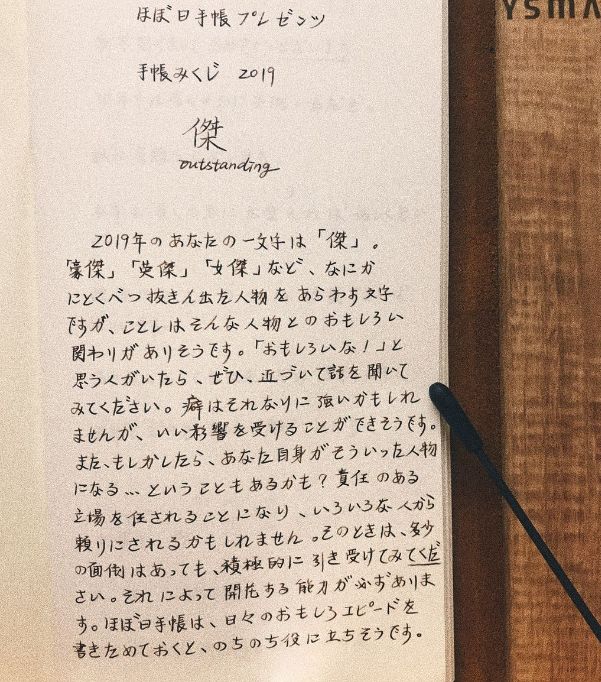 ほぼ日手帳プレゼンツ
手帳みくじ 2019
傑
outstanding
2019年のあなたの一文字は「傑」。
「豪傑」「英傑」「女傑」など、なにか
にとくべつ抜きん出た人物をあらわす文字
ですが、ことしはそんな人物とのおもしろい
関わりがありそうです。「おもしろいな!」と
思う人がいたら、ぜひ、近づいて話を聞いて
みてください。癖はそれなりに強いかもしれ
ませんが、いい影響を受けることができそうです。
また、もしかしたら、あなた自身がそういった人物
になる…ということもあるかも?責任のある
立場を任されることになり、いろいろな人から
頼りにされるかもしれません。そのときは、多少
の面倒はあっても、積極的に引き受けてみてくだ
さい。それによって開花する能力が必ずありま
す。ほぼ日手帳は、日々のおもしろエピードを
書きためておくと、のちのち役に立ちそうです。